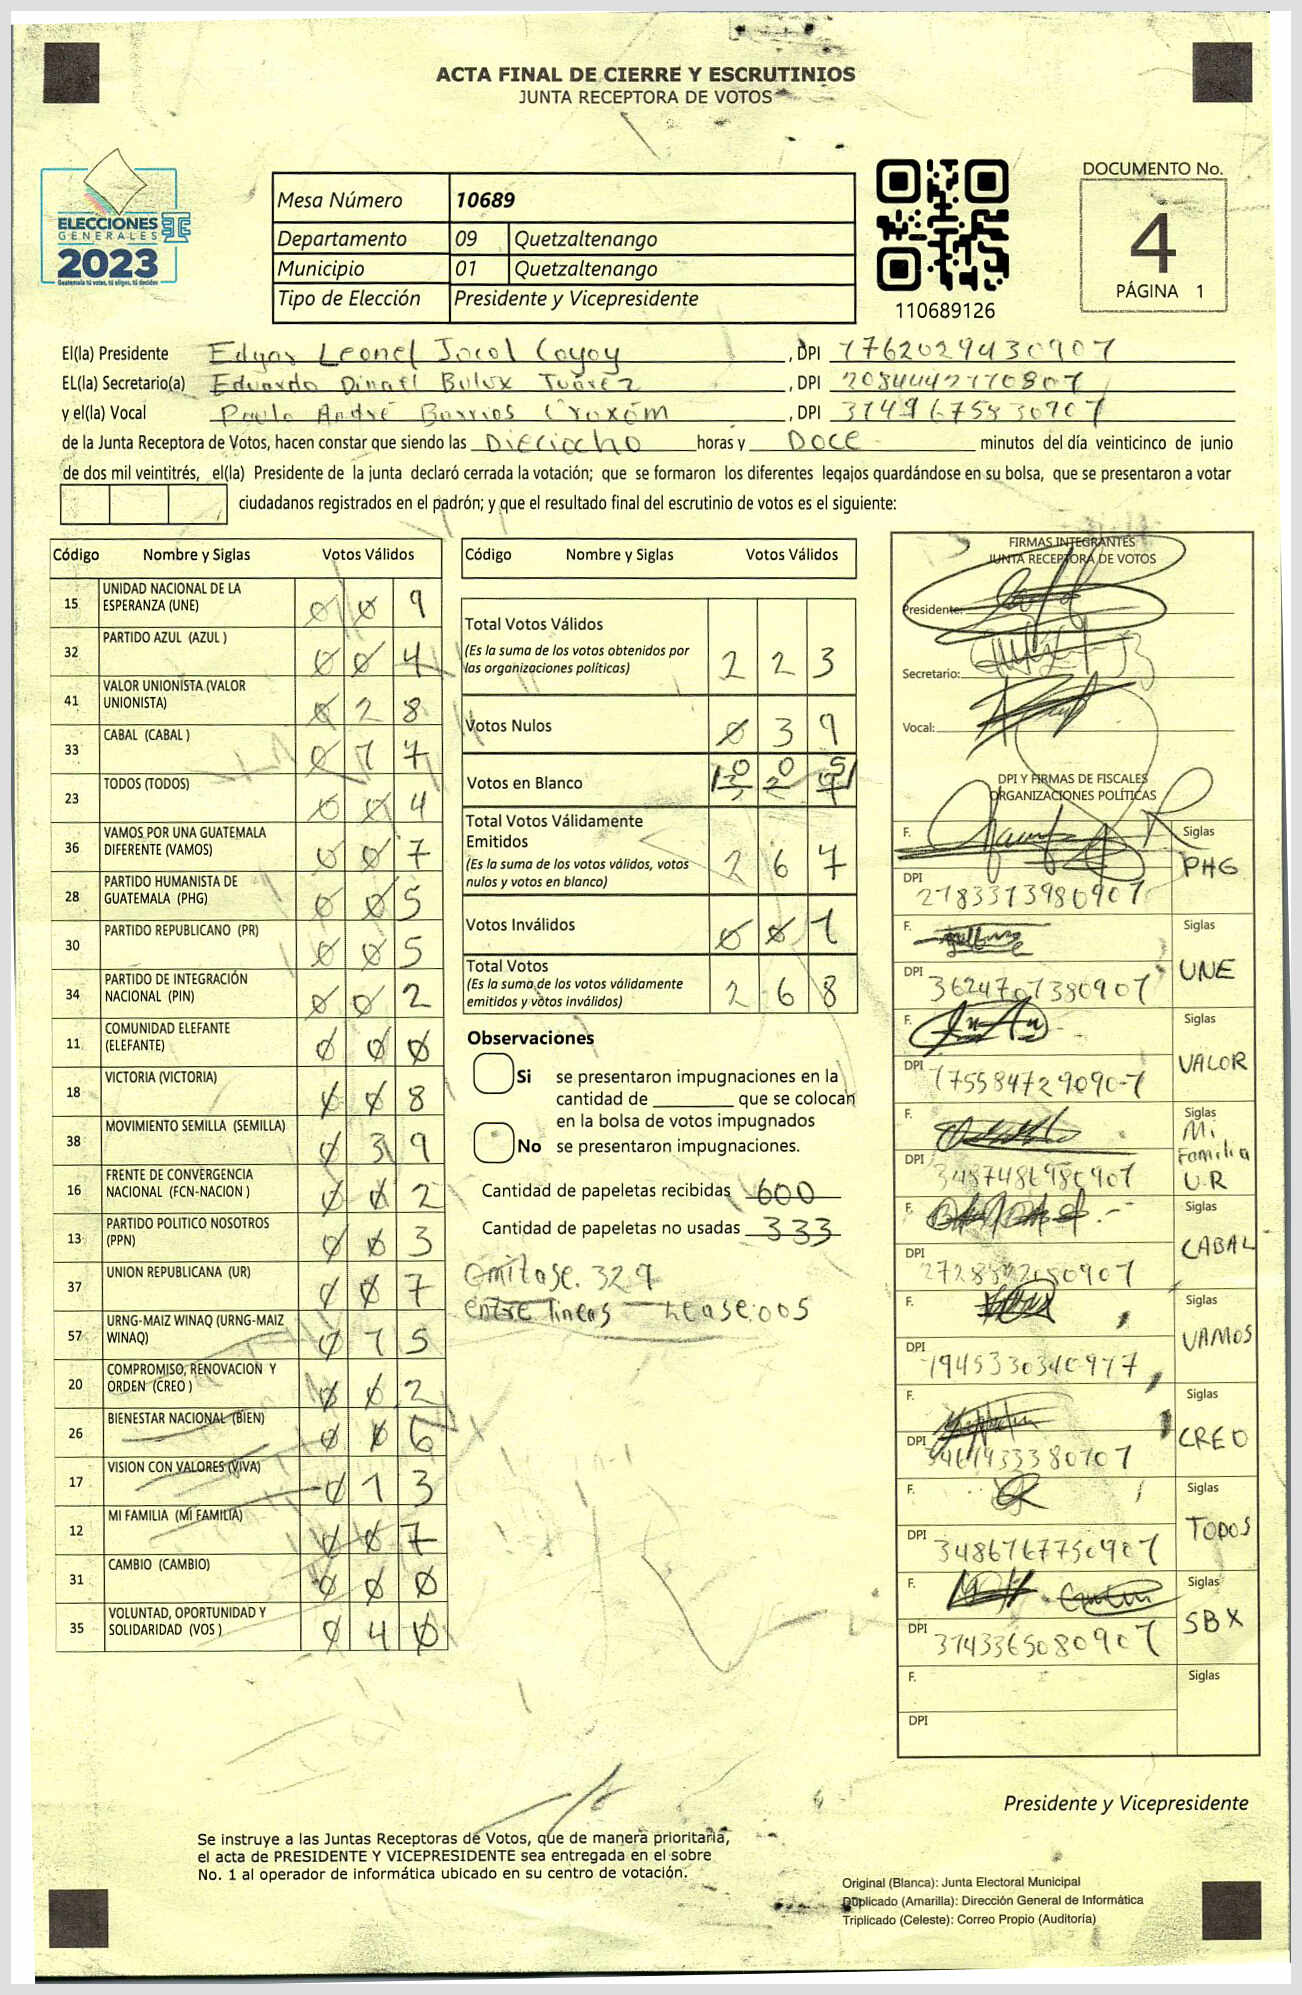 ACTA FINAL DE CIERRE Y ESCRUTINIOS
JUNTA RECEPTORA DE VOTOS
ELECCIONES
GENERALES
2023
Guatemala tú votas, tú eliges, tú decides
Mesa Número 10689
Departamento 09 Quetzaltenango
Municipio 01 Quetzaltenango
Tipo de Elección Presidente y Vicepresidente
110689126
DOCUMENTO No.
4
PÁGINA 1
El(la) Presidente Edgar Leonel Jocol Coyoy, DPI 1762029430907
EL(la) Secretario(a) Eduardo Dinael Bulux Tuárez, DPI 2084442770807
y el(la) Vocal Paulo André Barrios Croxóm, DPI 3149675830907
de la Junta Receptora de Votos, hacen constar que siendo las Dieciocho horas y DOCE minutos del día veinticinco de junio
de dos mil veintitrés, el(la) Presidente de la junta declaró cerrada la votación; que se formaron los diferentes legajos guardándose en su bolsa, que se presentaron a votar
ciudadanos registrados en el padrón; y que el resultado final del escrutinio de votos es el siguiente:
Código Nombre y Siglas Votos Válidos
15 UNIDAD NACIONAL DE LA ESPERANZA (UNE) 0 0 9
32 PARTIDO AZUL (AZUL ) 0 0 4
41 VALOR UNIONISTA (VALOR UNIONISTA) 0 2 8
33 CABAL (CABAL ) 0 1 7
23 TODOS (TODOS) 0 0 4
36 VAMOS POR UNA GUATEMALA DIFERENTE (VAMOS) 0 0 7
28 PARTIDO HUMANISTA DE GUATEMALA (PHG) 0 0 5
30 PARTIDO REPUBLICANO (PR) 0 0 5
34 PARTIDO DE INTEGRACIÓN NACIONAL (PIN) 0 0 2
11 COMUNIDAD ELEFANTE (ELEFANTE) 0 0 0
18 VICTORIA (VICTORIA) 0 0 8
38 MOVIMIENTO SEMILLA (SEMILLA) 0 3 9
16 FRENTE DE CONVERGENCIA NACIONAL (FCN-NACION ) 0 0 2
13 PARTIDO POLITICO NOSOTROS (PPN) 0 0 3
37 UNION REPUBLICANA (UR) 0 0 7
57 URNG-MAIZ WINAQ (URNG-MAIZ WINAQ) 0 1 5
20 COMPROMISO, RENOVACION Y ORDEN (CREO ) 0 0 2
26 BIENESTAR NACIONAL (BIEN) 0 0 6
17 VISION CON VALORES (VIVA) 0 1 3
12 MI FAMILIA (MI FAMILIA) 0 0 7
31 CAMBIO (CAMBIO) 0 0 0
35 VOLUNTAD, OPORTUNIDAD Y SOLIDARIDAD (VOS ) 0 4 0
Código Nombre y Siglas Votos Válidos
Total Votos Válidos
(Es la suma de los votos obtenidos por
las organizaciones políticas) 2 2 3
Votos Nulos 0 3 9
Votos en Blanco 0 0 5
Total Votos Válidamente
Emitidos
(Es la suma de los votos válidos, votos
nulos y votos en blanco) 2 6 7
Votos Inválidos 0 0 1
Total Votos
(Es la suma de los votos válidamente
emitidos y votos inválidos) 2 6 8
Observaciones
Si se presentaron impugnaciones en la
cantidad de ________ que se colocan
en la bolsa de votos impugnados
No se presentaron impugnaciones.
Cantidad de papeletas recibidas 600
Cantidad de papeletas no usadas 333
omitase. 329
entre lineas Lease: 005
FIRMAS INTEGRANTES
JUNTA RECEPTORA DE VOTOS
Presidente:
Secretario:
Vocal:
DPI Y FIRMAS DE FISCALES
ORGANIZACIONES POLÍTICAS
F. Siglas PHG
DPI 2783373980907
F. Siglas UNE
DPI 3624707380907
F. Siglas VALOR
DPI 1755847290907
F. Siglas Mi Familia U.R
DPI 3487486980907
F. Siglas CABAL
DPI
F. Siglas VAMOS
DPI 1945330340977
F. Siglas CREO
DPI
F. Siglas TODOS
DPI 3486767750907
F. Siglas SBX
DPI 3743365080907
F. Siglas
DPI
Presidente y Vicepresidente
Se instruye a las Juntas Receptoras de Votos, que de manera prioritaria,
el acta de PRESIDENTE Y VICEPRESIDENTE sea entregada en el sobre
No. 1 al operador de informática ubicado en su centro de votación.
Original (Blanca): Junta Electoral Municipal
Duplicado (Amarilla): Dirección General de Informática
Triplicado (Celeste): Correo Propio (Auditoría)